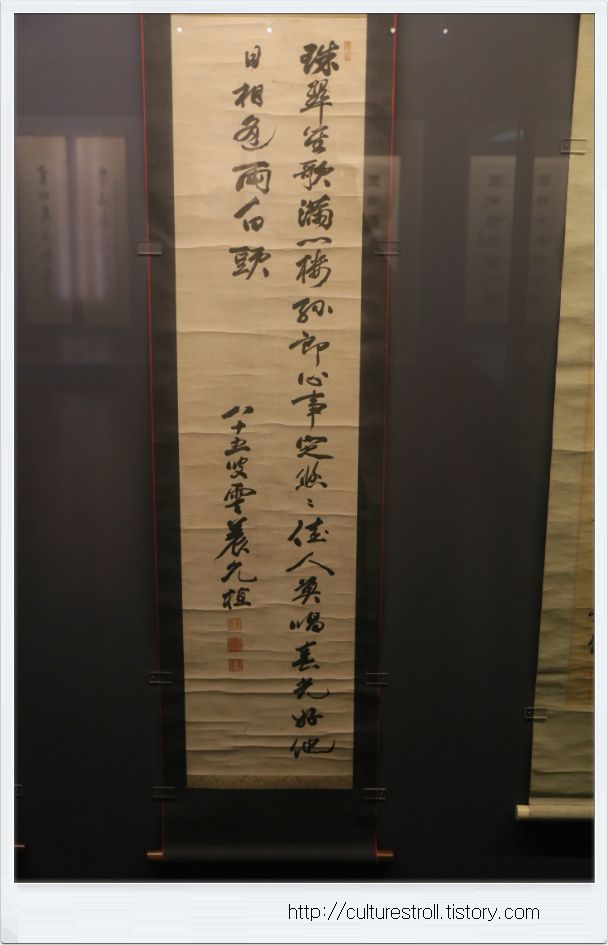 珠翠笙歌滿一樓孫郎心事定悠〻佳人莫唱春光好他
日相逢兩白頭
八十五叟雲養允植
http://culturestroll.tistory.com